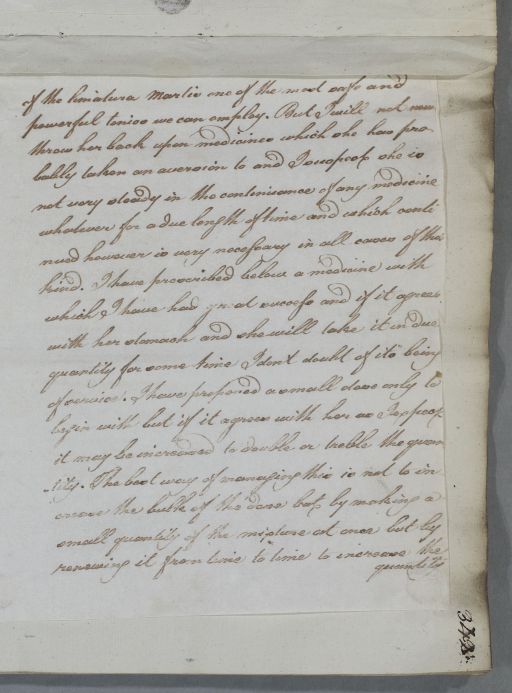 of the Limatura Martis one of the most safe and
powerful tonics we can employ. But I will not now
throw her back upon medicines which she has pro-
bably taken an aversion to and I suspect she is
not very steady in the continuance of any medicine
whatever for a due length of time and which conti
nued however is very necessary in all cases of this
kind. I have prescribed below a medicine with
which I have had great success and if it agrees
with her stomach and she will take it in due
quantity for some time I don't doubt of its being
of service. I have proposed a small dose only to
begin with but if it agrees with her as I expect
it may be increased to double or treble the quan
-tity. The best way of managing this is not to in
crease the bulk of the dose but by making a
small quantity of the mixture at once but by
renewing it from time to time to increase the
quantity